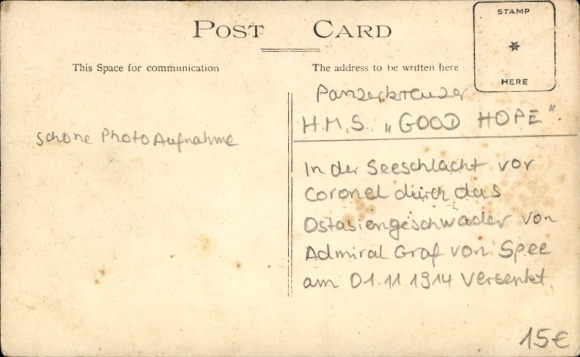 POST CARD
STAMP
HERE
This Space for communication
The address to be written here
Panzerkreuzer
H.M.S „GOOD HOPE".
schöne Photo Aufnahme
In der Seeschlacht vor
Coronel durch das
Ostasiengeschwader von
Admiral Graf von Spee
am 01.11.1914 versenkt.
15€